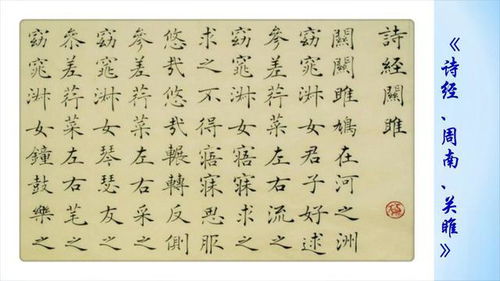 《诗经、周南、关雎》
詩經關雎
關關雎鳩在河之洲
窈窕淑女君子好逑
參差荇菜左右流之
窈窕淑女寤寐求之
求之不得寤寐思服
悠哉悠哉輾轉反側
參差荇菜左右采之
窈窕淑女琴瑟友之
參差荇菜左右芼之
窈窕淑女鐘鼓樂之